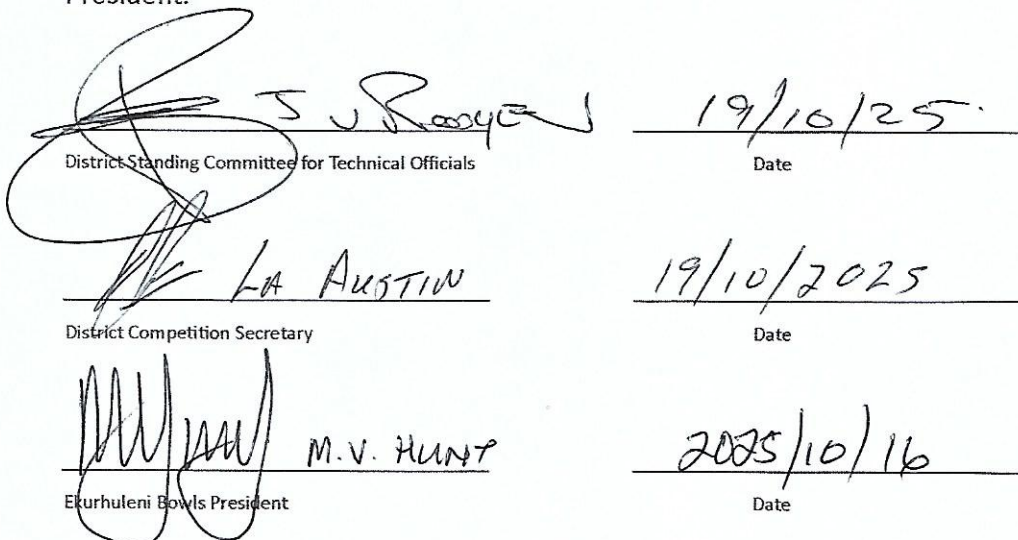 President.
J V Rooyen 19/10/25.
District Standing Committee for Technical Officials Date
LA AUSTIN 19/10/2025
District Competition Secretary Date
M.V. HUNT 2025/10/16
Ekurhuleni Bowls President Date